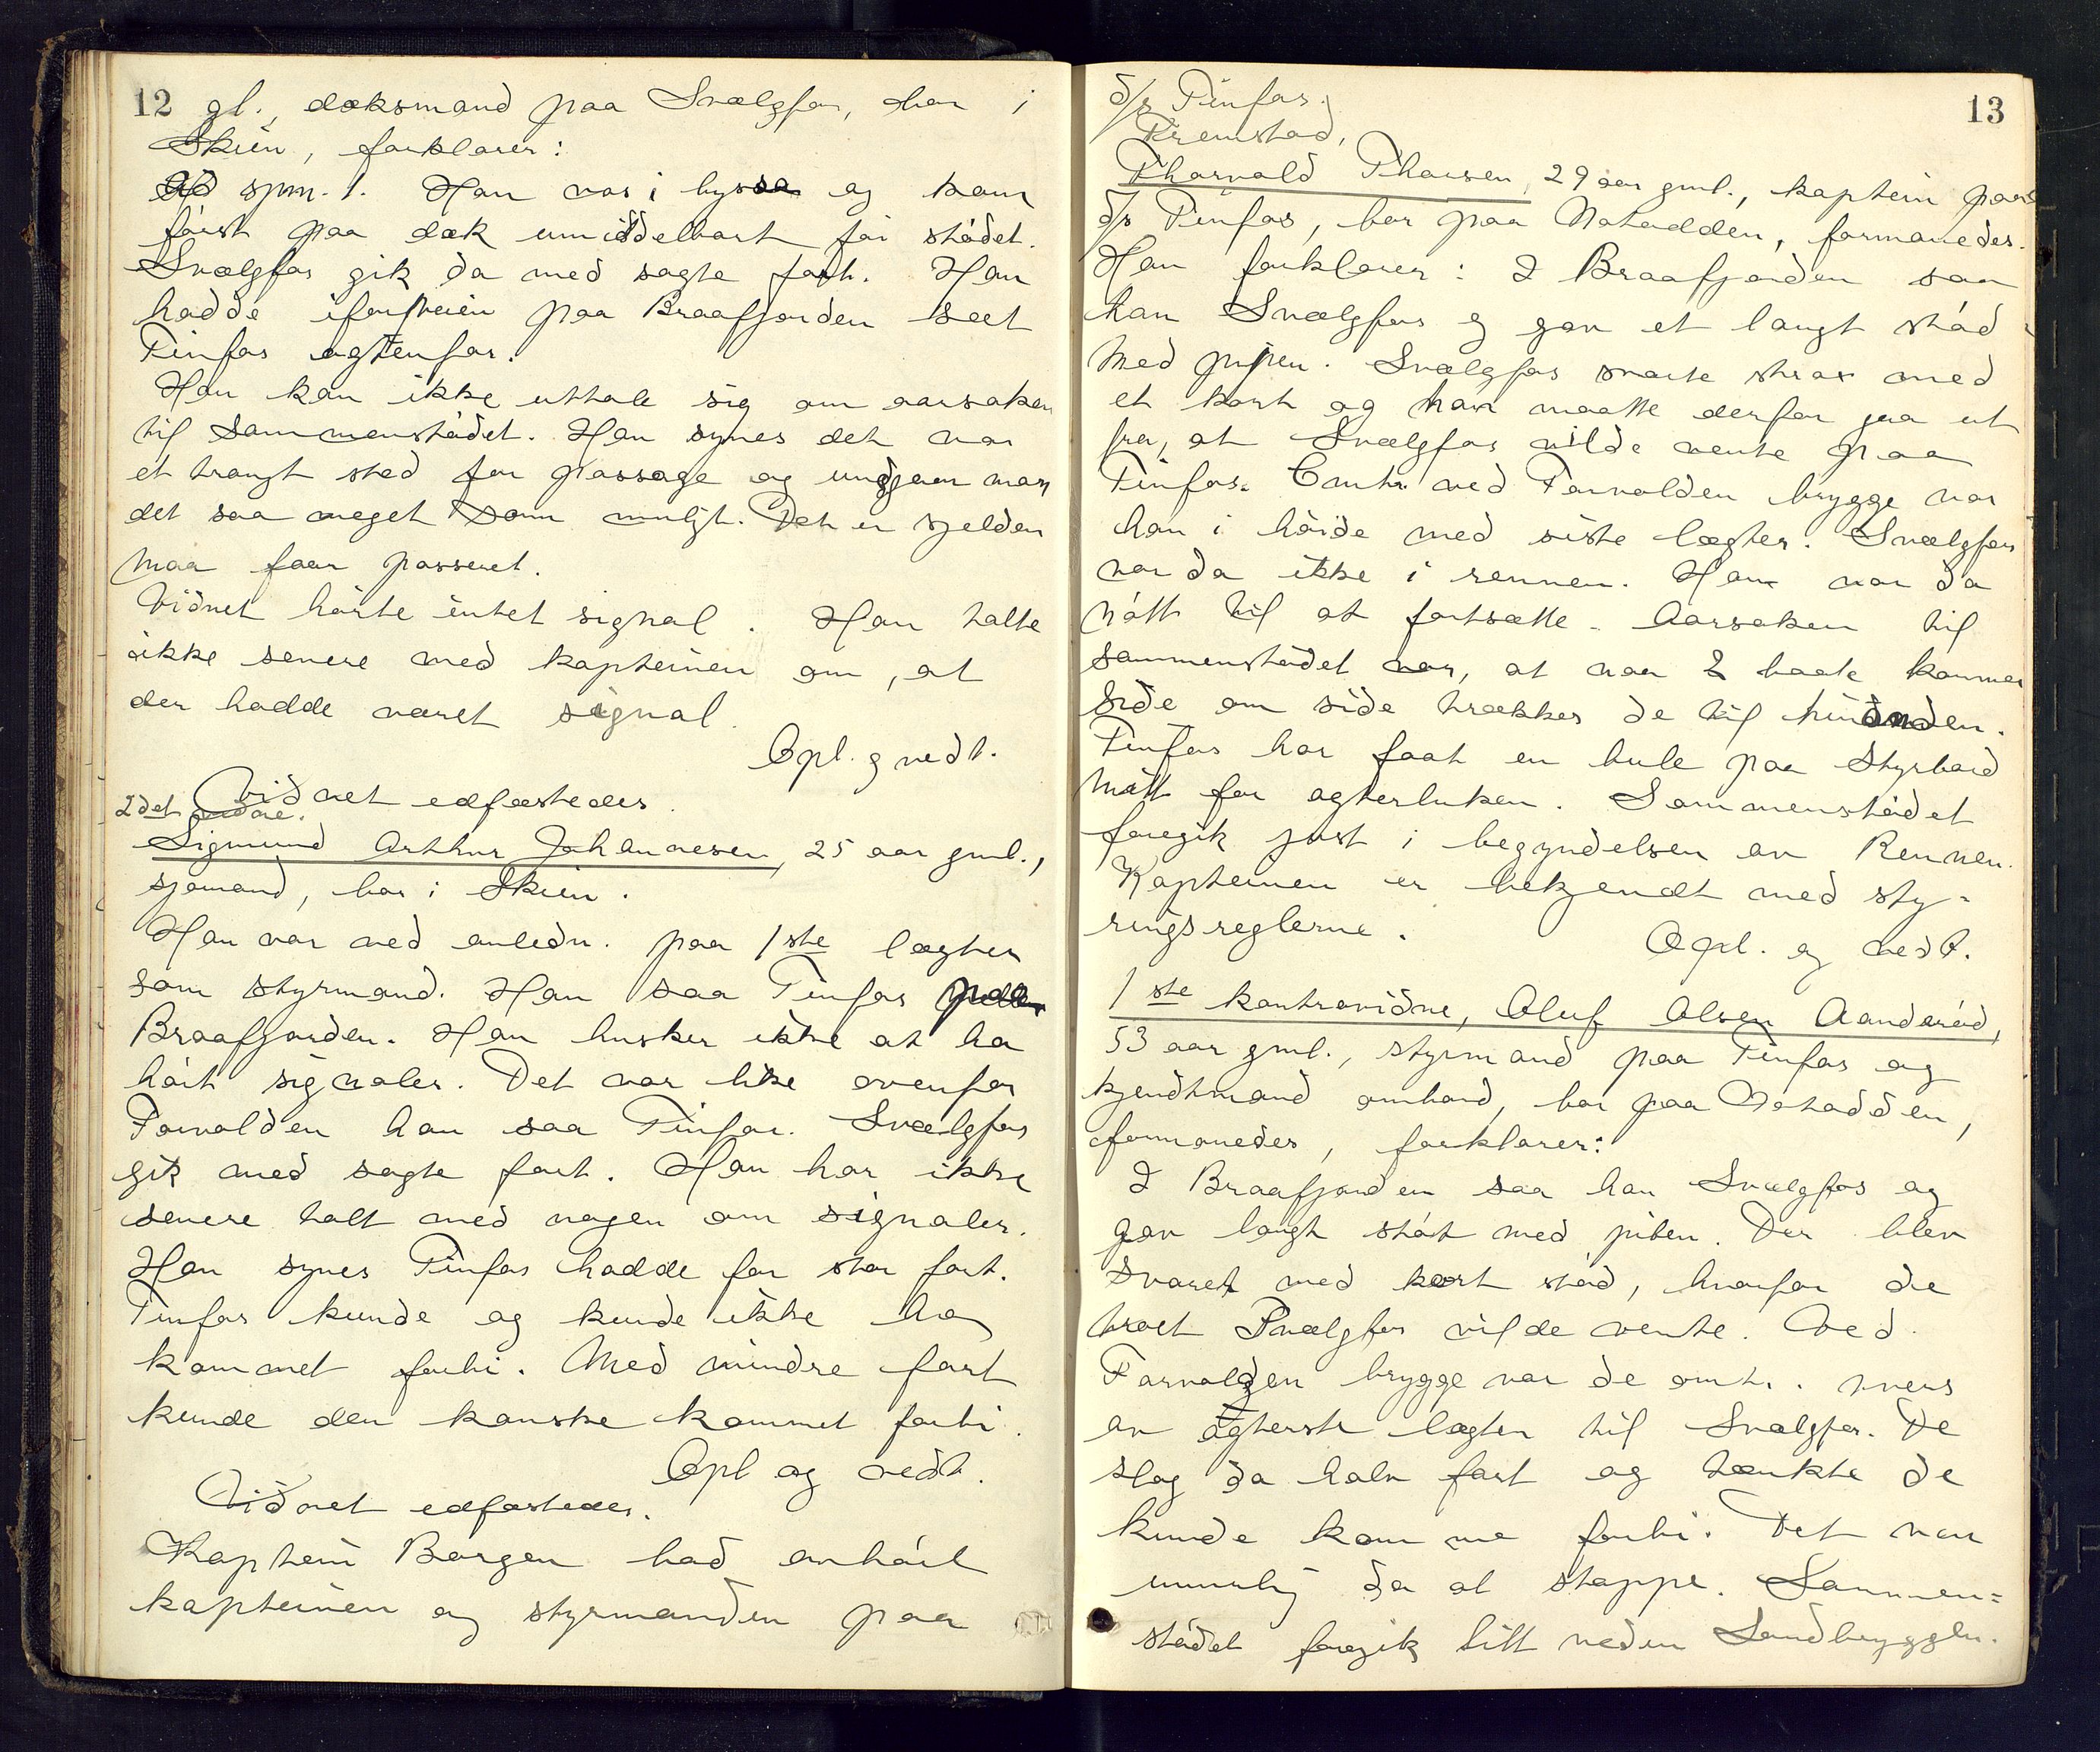 12 gl., dæksmand paa Svælgfos, bor i
Skien, forklarer:
Ad spm. 1. Han var i byssa og kom
først paa dæk umiddelbart før stødet.
Svælgfos gik da med sagte fart. Han
hadde iforveien paa Braafjorden seet
Tinfos agtenfor.
Han kan ikke uttale sig om aarsaken
til sammenstødet. Han synes det var
et trangt sted for passage og undgaar man
det saa meget som muligt. Det er sjelden
man faar passeret.
Vidnet hørte intet signal. Han talte
ikke senere med kapteinen om, at
der hadde været signal.
Opl. g vedt.
Vidnet edfæstedes.
2det vidne.
Sigmund Arthur Johannesen, 25 aar gml.,
sjømand, bor i Skien.
Han var ved anledn. paa 1ste lægter
som styrmand. Han saa Tinfos paa
Braafjorden. Han husker ikke at ha
hørt signaler. Det var like ovenfor
Farvolden han saa Tinfos. Svælgfos
gik med sagte fart. Han har ikke
senere talt med nogen om signaler.
Han synes Tinfos hadde for stor fart.
Tinfos kunde og kunde ikke ha
kommet forbi. Med mindre fart
kunde den kanske kommet forbi.
Opl og vedt.
Vidnet edfæstedes.
Kaptein Borgen bad avhørt
kapteinen og styrmanden paa
13
d/s Tinfos.
Fremstod,
Thorvald Thorsen, 29 aar gml., kaptein paa
d/s Tinfos, bor paa Notodden, formanedes.
Han forklarer: I Braafjorden saa
han Svælgfos og gav et langt stød
med pipen. Svælgfos svarte strax med
et kort og han maatte derfor gaa ut
fra, at Svælgfos vilde vente paa
Tinfos. Omtr. ved Farvolden brygge var
han i høide med siste lægter. Svælgfos
var da ikke i rennen. Han var da
nøtt til at fortsætte. Aarsaken til
sammenstødet var, at naar 2 baate kommer
side om side trækker de til hinanden.
Tinfos har faat en bule paa Styrbord
mitt for agterluken. Sammenstødet
foregik just i begyndelsen av Rennen.
Kapteinen er bekjendt med sty-
ringsreglerne.
Opl. og vedt.
1ste kontravidne, Oluf Olsen Aanderød,
53 aar gml., styrmand paa Tinfos og
kjendtmand ombord, bor paa Notodden,
formanedes, forklarer:
I Braafjorden saa han Svælgfos og
gav langt støt med piben. Der blev
svaret med kort stød, hvorfor de
troet Svælgfos vilde vente. Ved
Farvolden brygge var de omtr. tvers
av agterste lægter til Svælgfos. De
slog da halv fart og tænkte de
kunde komme forbi. Det var
umulig da at stoppe. Sammen=
stødet foregik litt neden Sandbryggen.